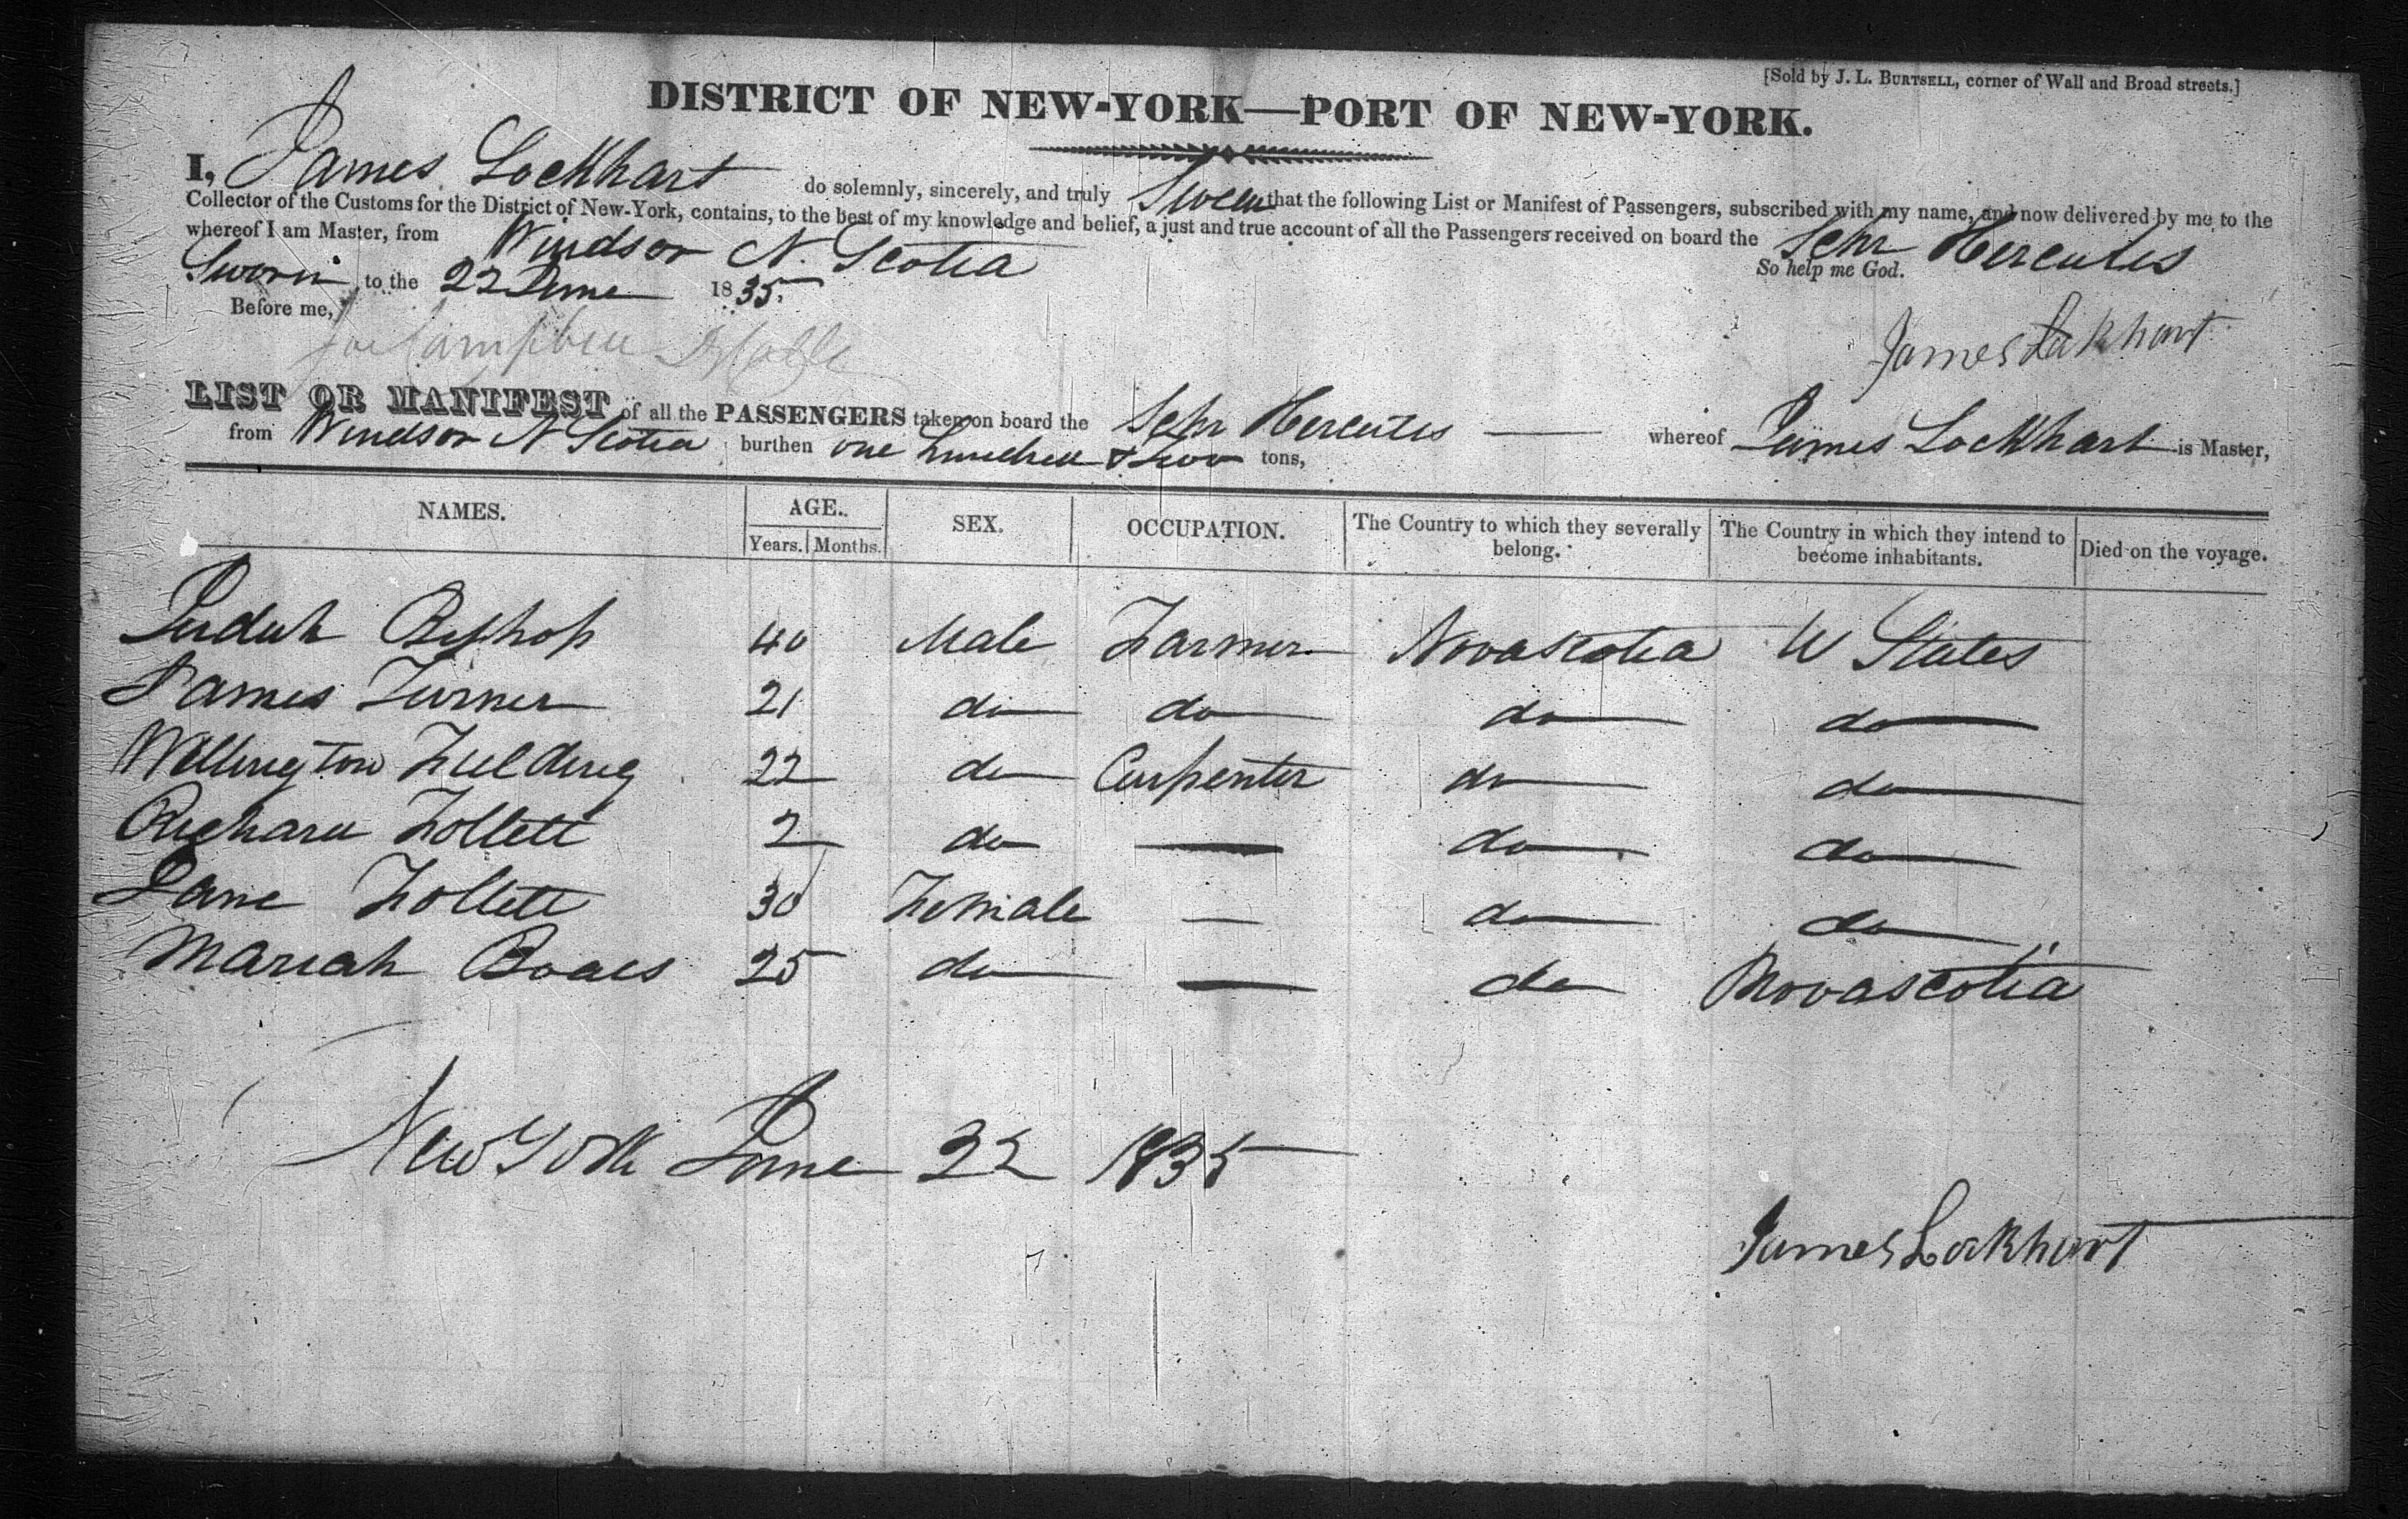 [Sold by J. L. BURTSELL, corner of Wall and Broad streets.]
DISTRICT OF NEW-YORK—PORT OF NEW-YORK.
I, James Lockhart do solemnly, sincerely, and truly Swear that the following List or Manifest of Passengers, subscribed with my name, and now delivered by me to the
Collector of the Customs for the District of New-York, contains, to the best of my knowledge and belief, a just and true account of all the Passengers received on board the Schr Hercules
whereof I am Master, from Windsor N. Scotia So help me God.
Sworn to the 22 June 1835.
Before me,
James Lockhart
LIST OR MANIFEST of all the PASSENGERS taken on board the Schr Hercules whereof James Lockhart is Master,
from Windsor N Scotia burthen one hundred & two tons,
NAMES. AGE. SEX. OCCUPATION. The Country to which they severally belong. The Country in which they intend to become inhabitants. Died on the voyage.
Years. Months.
Judah Bishop 40 Male Farmer Novascotia U States
James Turner 21 do do do do
Wellington Fielding 22 do Carpenter do do
Richard Follett 2 do — do do
Jane Follett 30 Female — do do
Mariah 25 do — do Novascotia
New York June 22 1835
James Lockhart